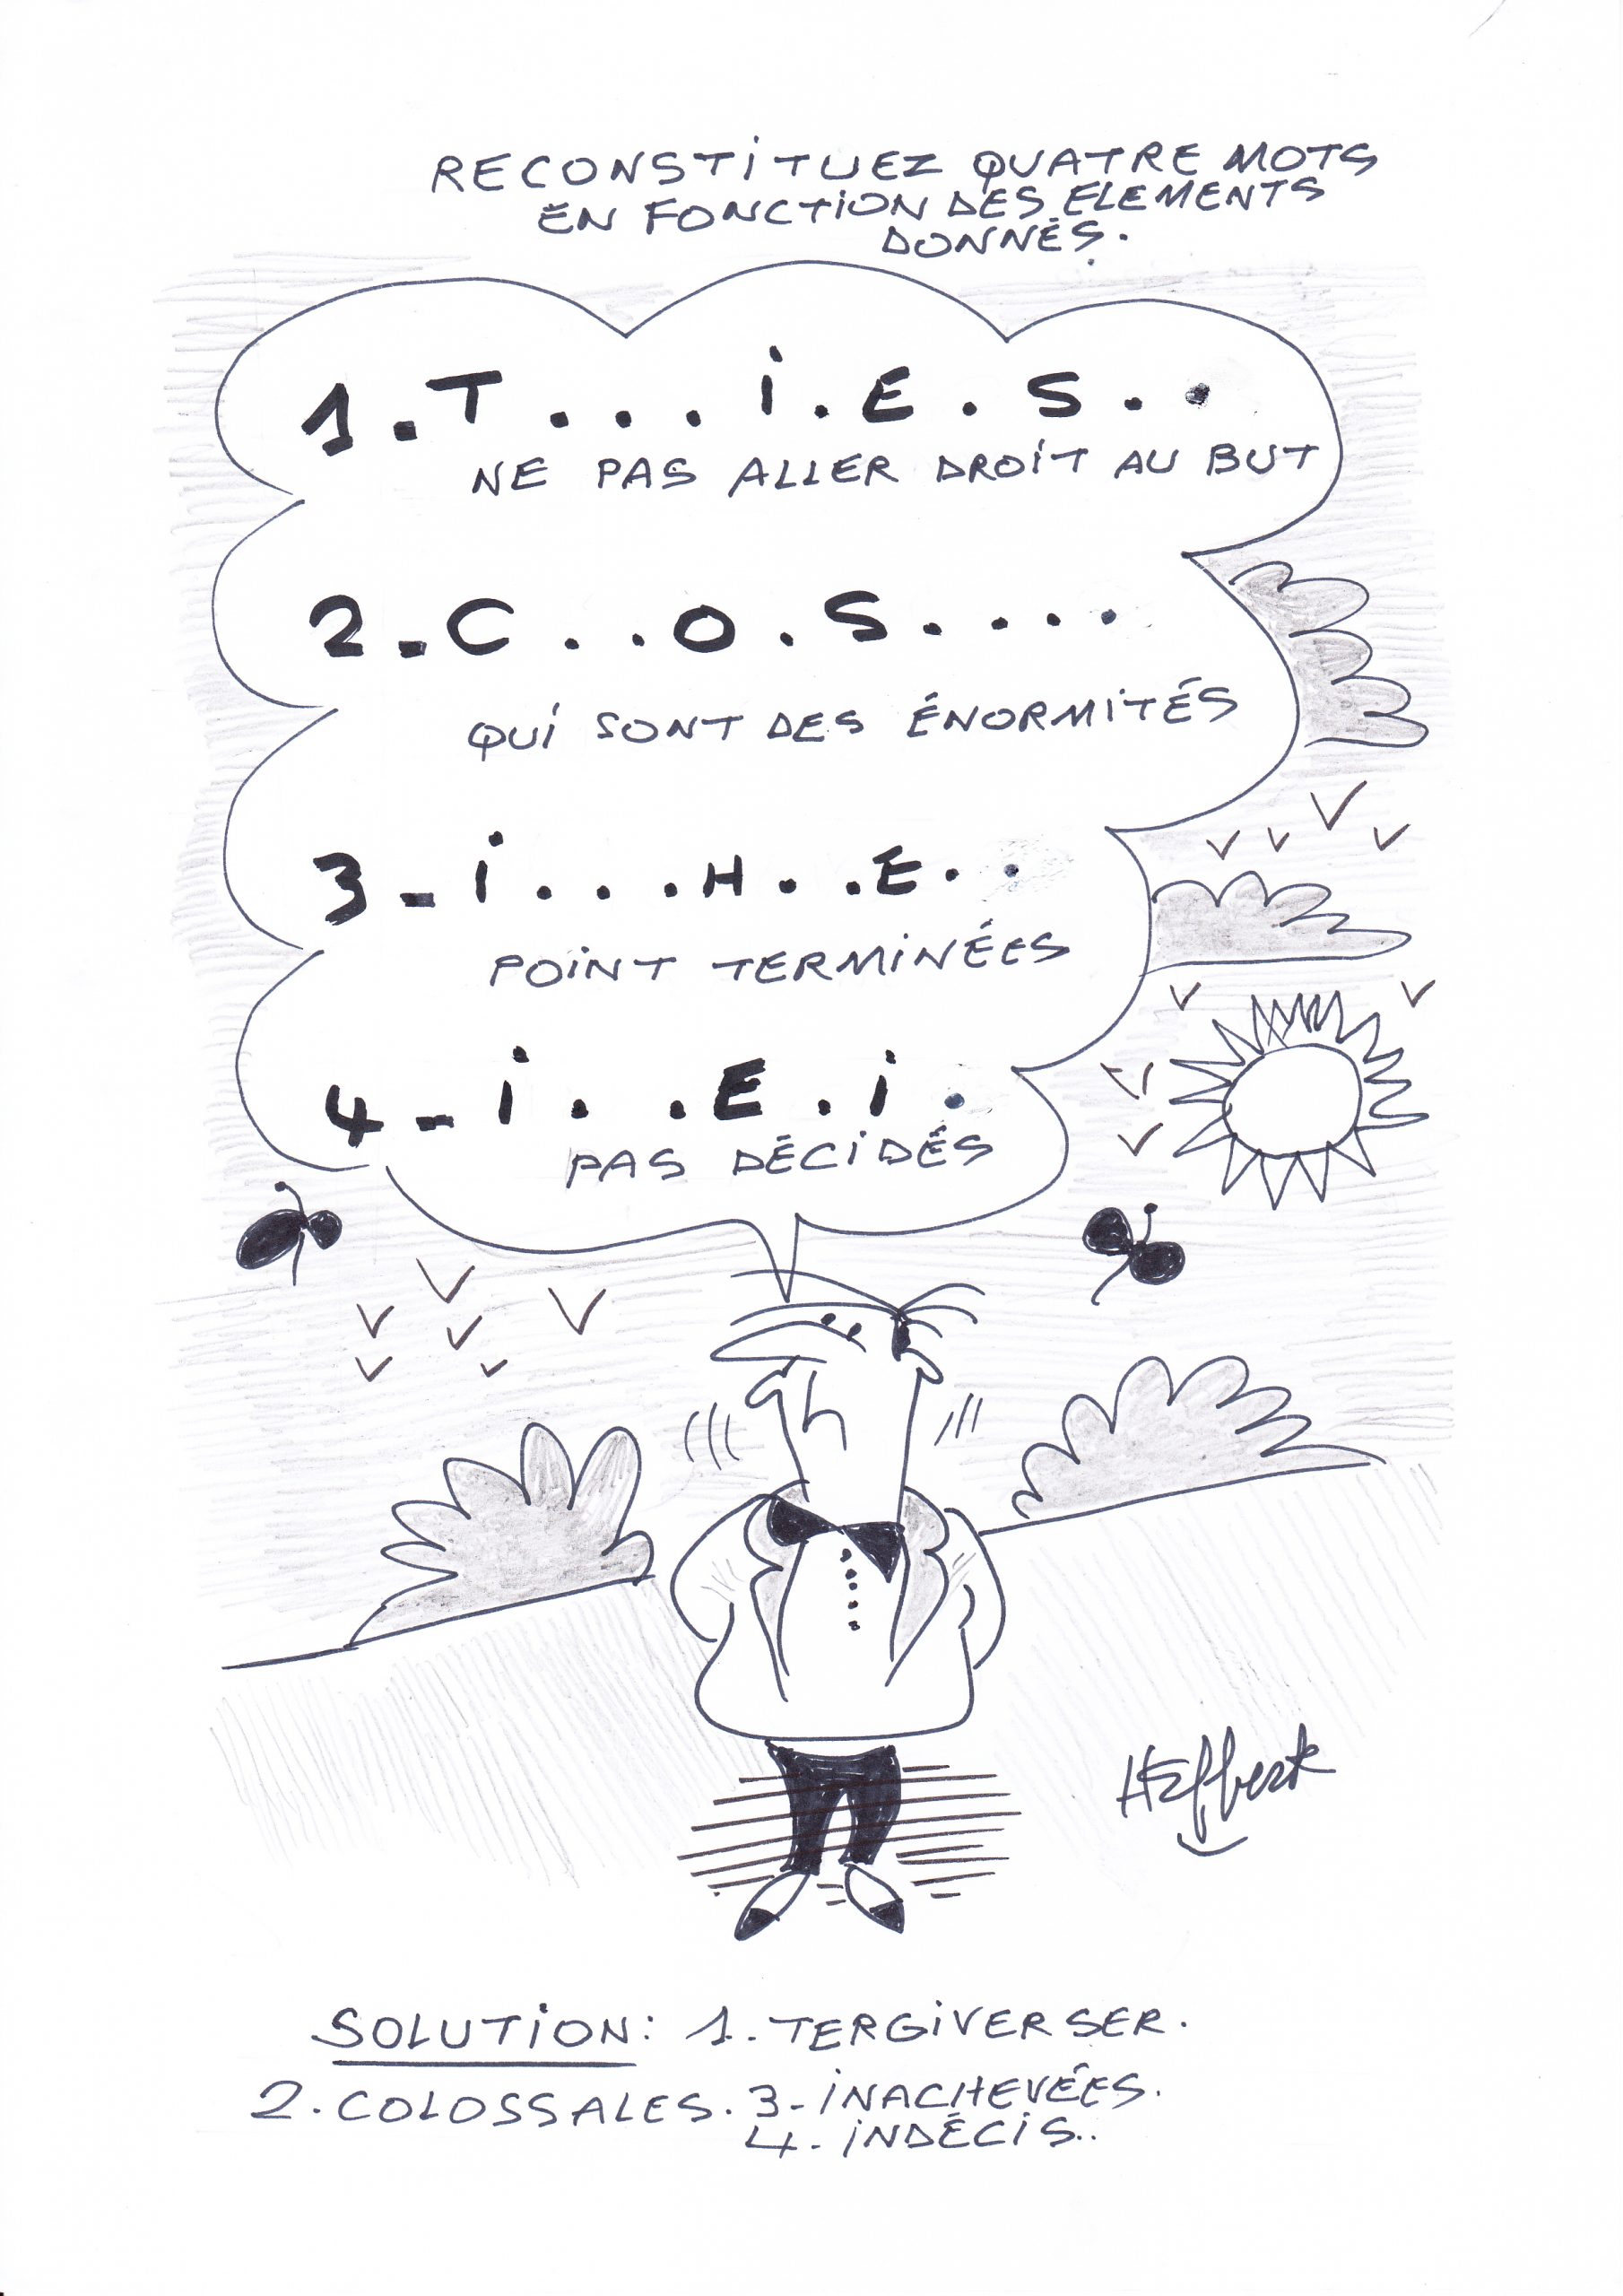 RECONSTITUEZ QUATRE MOTS
EN FONCTION DES ELEMENTS
DONNÉS.
1.T...i.E.S..
NE PAS ALLER DROiT AU BUT
2.C..O.S....
QUi SONT DES ÉNORMiTÉS
3-i...H..E..
POiNT TERMiNÉES
4-i..E.i.
PAS DÉCiDÉS
Heffbert
SOLUTiON: 1.TERGiVERSER.
2.COLOSSALES. 3-iNACHEVÉES.
4-iNDÉCiS..